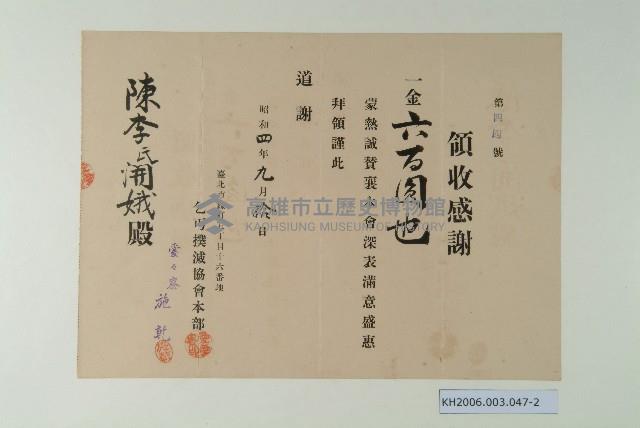 第四四號
領收感謝
一金六百圓也
蒙熱誠贊襄本會深表滿意盛惠
拜領謹此
道謝
昭和四年九月拾日
臺北市 丁目十六番地
乞丐撲滅協會本部
愛々寮 施乾
陳李氏開娥殿
高雄市立歷史博物館
KAOHSIUNG MUSEUM OF HISTORY
KH2006.003.047-2